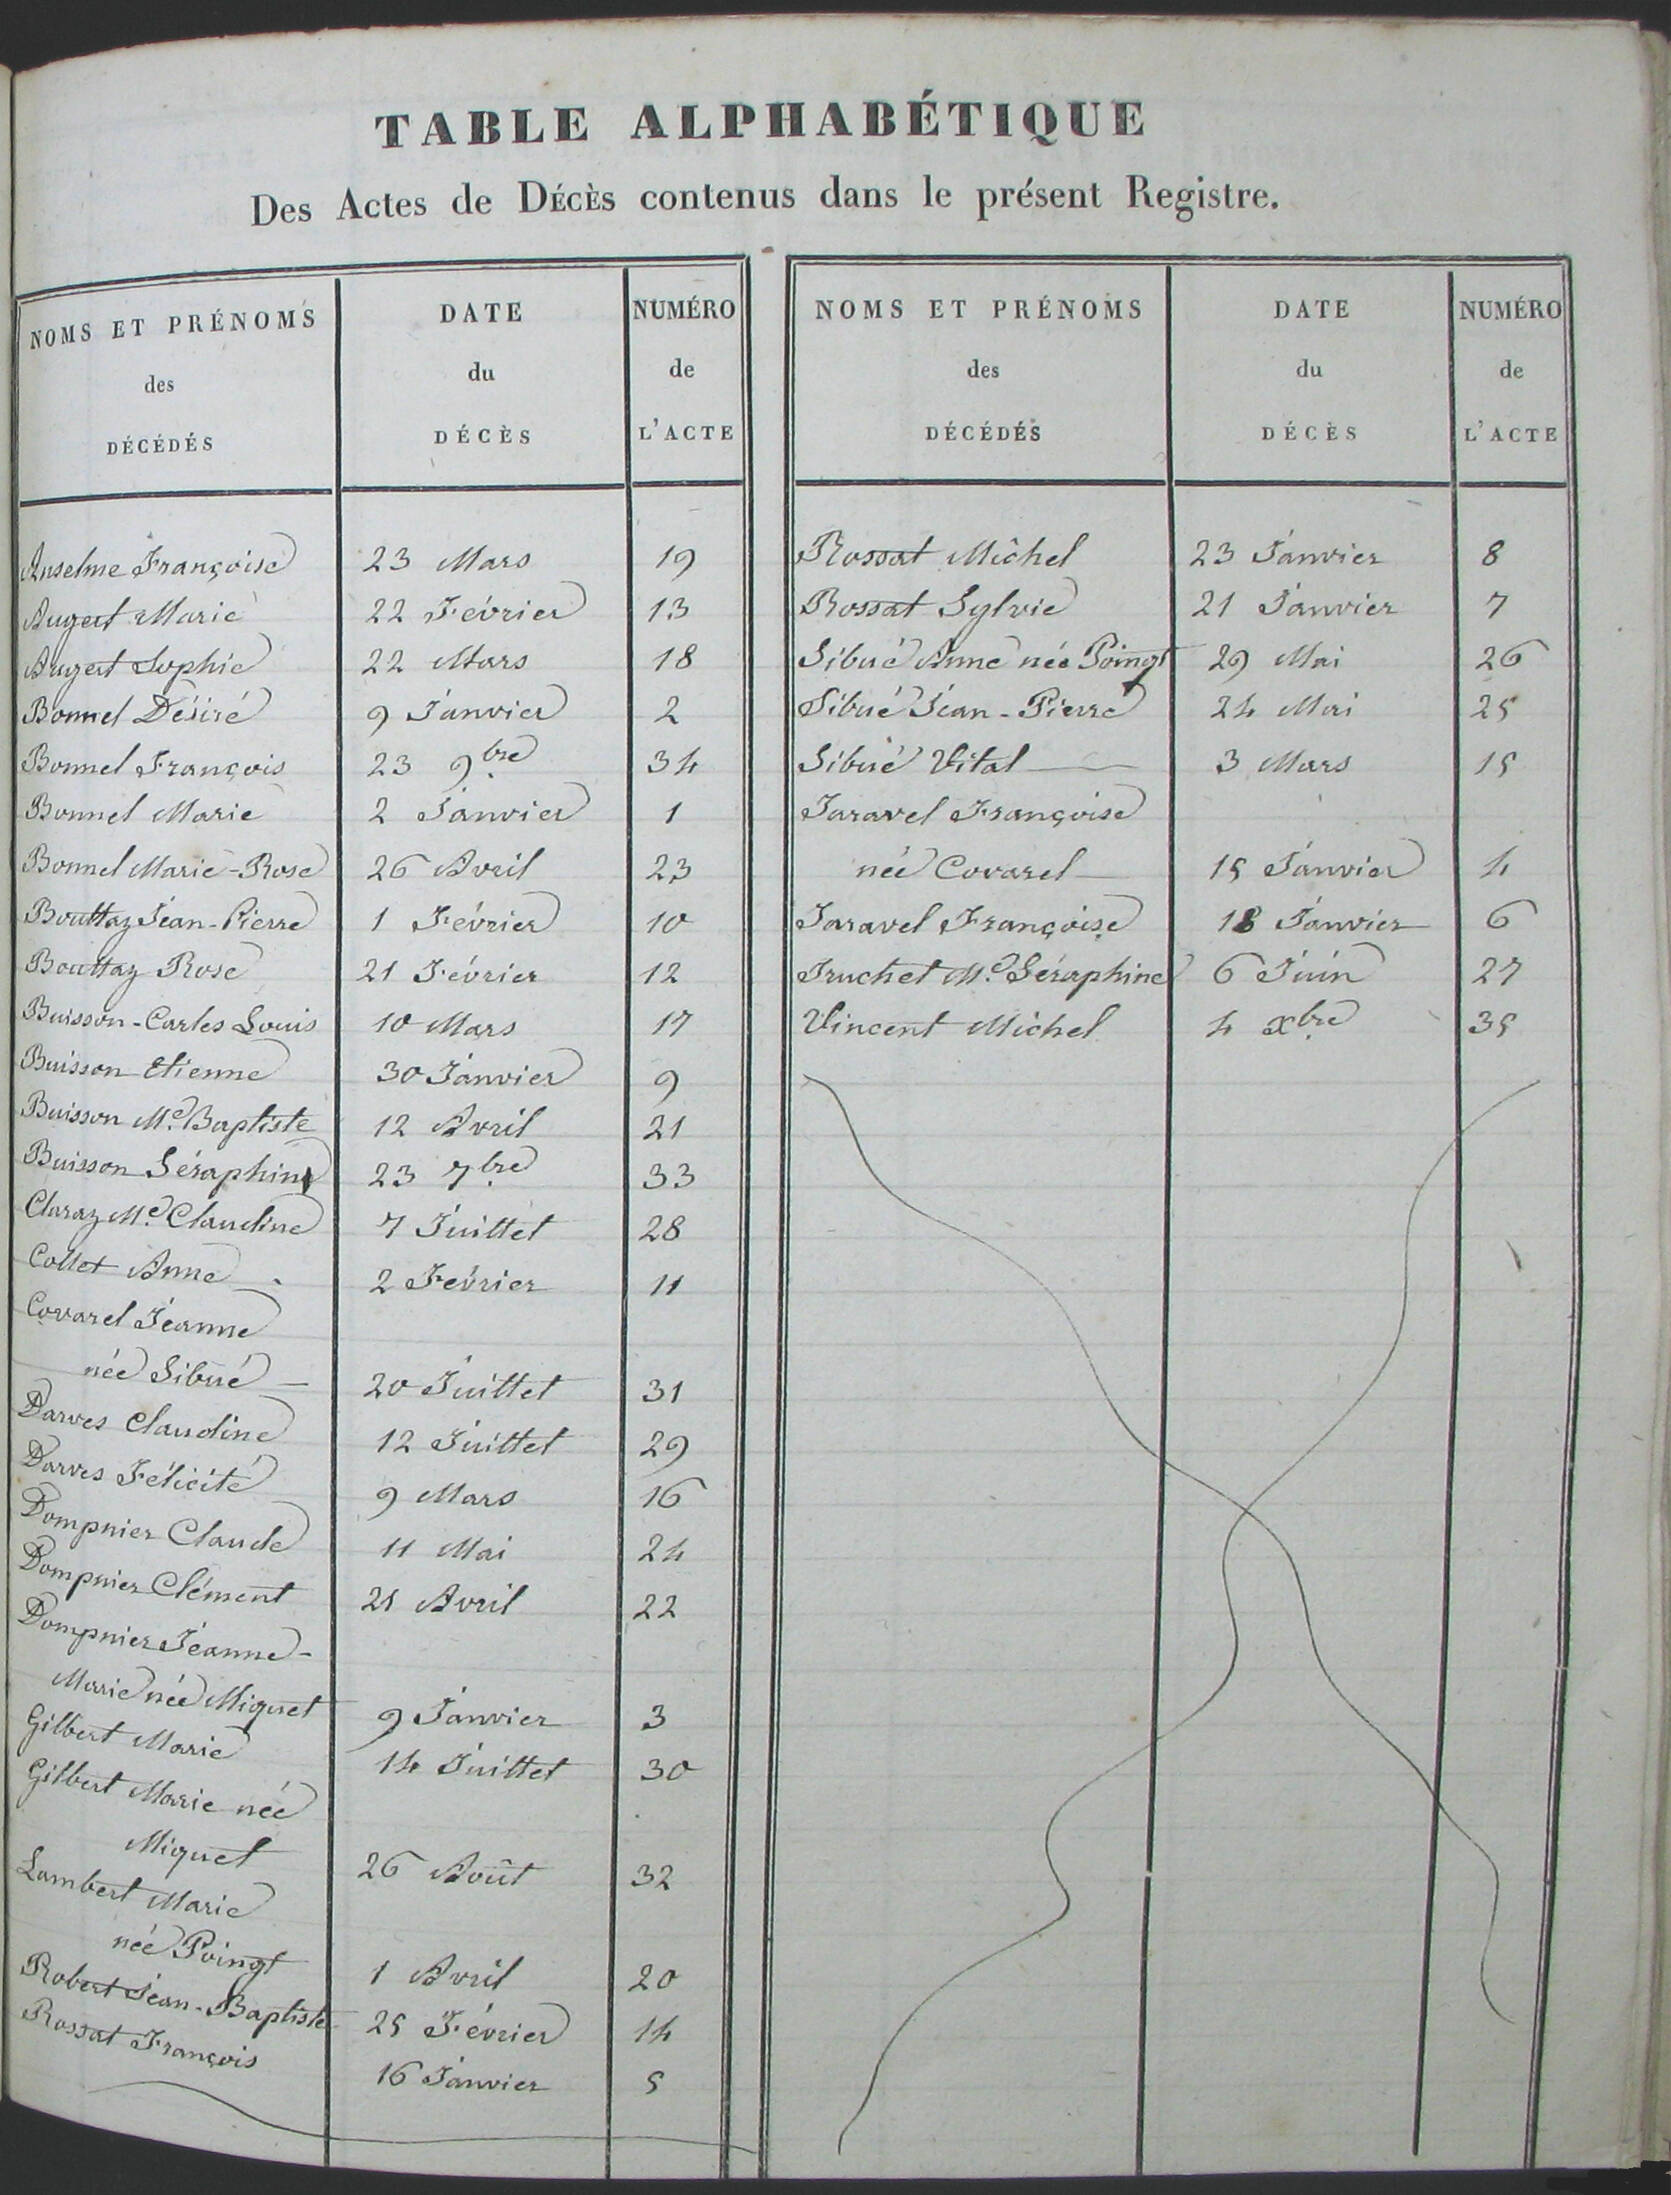 TABLE ALPHABÉTIQUE
Des Actes de Décès contenus dans le présent Registre.
NOMS ET PRÉNOMS
des
DÉCÉDÉS
DATE
du
DÉCÈS
NUMÉRO
de
L'ACTE
Anselme Françoise 23 Mars 19
Augert Marie 22 Février 13
Augert Sophie 22 Mars 18
Bonnel Désiré 9 Janvier 2
Bonnel François 23 9bre 34
Bonnel Marie 2 Janvier 1
Bonnel Marie-Rose 26 Avril 23
Bouttaz Jean-Pierre 1 Février 10
Bouttaz Rose 21 Février 12
Buisson-Carles Louis 10 Mars 17
Buisson Etienne 30 Janvier 9
Buisson Me. Baptiste 12 Avril 21
Buisson Séraphine 23 7bre 33
Claraz Me. Claudine 7 Juillet 28
Collet Anne 2 Février 11
Covarel Jeanne
née Sibué — 20 Juillet 31
Darves Claudine 12 Juillet 29
Darves Félicité 9 Mars 16
Dompnier Claude 11 Mai 24
Dompnier Clément 21 Avril 22
Dompnier Jeanne-
Marie née Miquet 9 Janvier 3
Gilbert Marie 14 Juillet 30
Gilbert Marie née
Miquet 26 Août 32
Lambert Marie
née Poingt 1 Avril 20
Robert Jean-Baptiste 25 Février 14
Rossat François 16 Janvier 5
NOMS ET PRÉNOMS
des
DÉCÉDÉS
DATE
du
DÉCÈS
NUMÉRO
de
L'ACTE
Rossat Michel 23 Janvier 8
Rossat Sylvie 21 Janvier 7
Sibué Anne née Poingt 29 Mai 26
Sibué Jean-Pierre 24 Mai 25
Sibué Vital — 3 Mars 15
Taravel Françoise
née Covarel — 15 Janvier 4
Taravel Françoise 18 Janvier 6
Truchet Me. Séraphine 6 Juin 27
Vincent Michel 4 xbre 35